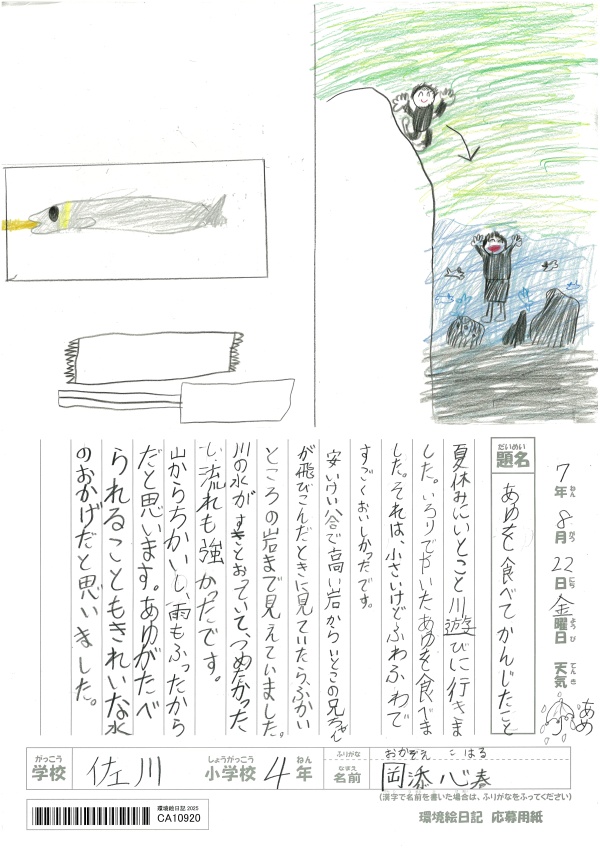 7年 8月 22日 金曜日 天気 あめ
ねん がつ にち ようび てんき
だいめい
題名 あゆを食べてかんじたこと
夏休みにいとこと川遊びに行きま
した。いろりでやいたあゆを食べま
した。それは、小さいけどふわふわで
すごくおいしかったです。
安いけい谷で高い岩からいとこの兄ちゃん
が飛びこんだときに見ていたら、ふかい
ところの岩まで見えていました。
川の水がすきとおっていて、つめたかった
し、流れも強かったです。
山からちかいし、雨もふったから
だと思います。あゆがたべ
られることもきれいな水
のおかげだと思いました。
がっこう しょうがっこう ねん ふりがな おかぞえ こはる
学校 佐川 小学校 4年 なまえ 名前 岡添 心春
(漢字で名前を書いた場合は、ふりがなをふってください)
環境絵日記 2025
CA10920
環境絵日記 応募用紙